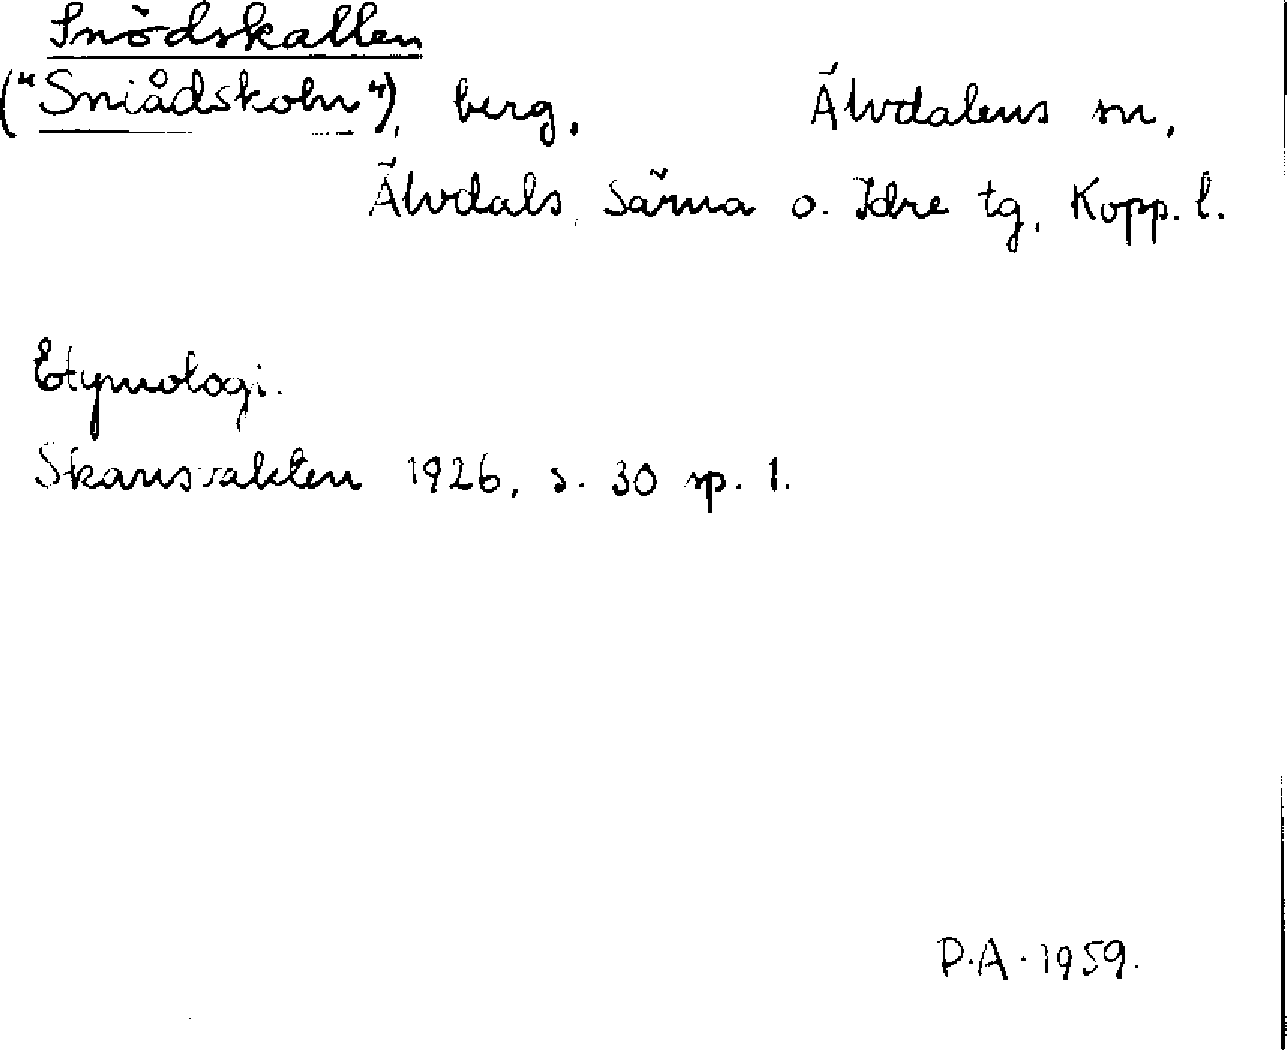 Snödskallen
("Sniådskoln"), berg. Älvdalens sn,
Älvdals, Särna o. Idre tg, Kopp. l.
Etymologi.
Skansvakten 1926, s. 30 sp. 1.
P.A. 1959.